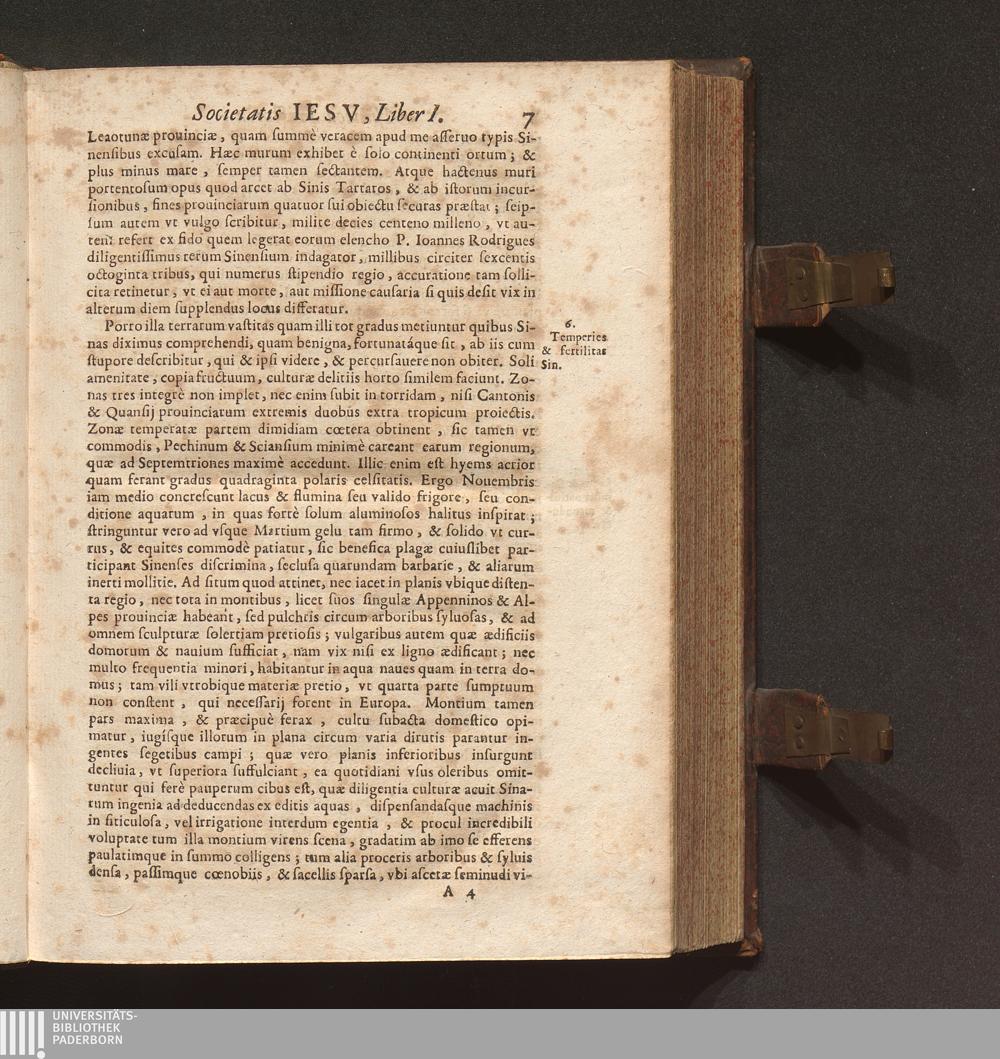 Societatis IESV, Liber I. 7
Leaotunæ prouinciæ, quam summè veracem apud me asseruo typis Si-
nensibus excusam. Hæc murum exhibet è solo continenti ortum; &
plus minus mare, semper tamen sectantem. Atque hactenus muri
portentosum opus quod arcet ab Sinis Tartaros, & ab istorum incur-
sionibus, fines prouinciarum quatuor sui obiectu securas præstat; seip-
sum autem vt vulgo scribitur, milite decies centeno milleno, vt au-
tem refert ex fido quem legerat eorum elencho P. Ioannes Rodrigues
diligentissimus rerum Sinensium indagator, millibus circiter sexcentis
octoginta tribus, qui numerus stipendio regio, accuratione tam solli-
cita retinetur, vt ei aut morte, aut missione causaria si quis desit vix in
alterum diem supplendus locus differatur.
Porro illa terrarum vastitas quam illi tot gradus metiuntur quibus Si-
nas diximus comprehendi, quam benigna, fortunatáque sit, ab iis cum
stupore describitur, qui & ipsi videre, & percursauere non obiter. Soli
amenitate, copia fructuum, culturæ delitiis horto similem faciunt. Zo-
nas tres integrè non implet, nec enim subit in torridam, nisi Cantonis
& Quansij prouinciarum extremis duobus extra tropicum proiectis.
Zonæ temperatæ partem dimidiam cœtera obtinent, sic tamen vt
commodis, Pechinum & Sciansium minimè careant earum regionum,
quæ ad Septemtriones maximè accedunt. Illic enim est hyems acrior
quam ferant gradus quadraginta polaris celsitatis. Ergo Nouembris
iam medio concrescunt lacus & flumina seu valido frigore, seu con-
ditione aquarum, in quas fortè solum aluminosos halitus inspirat;
stringuntur vero ad vsque Martium gelu tam firmo, & solido vt cur-
rus, & equites commodè patiatur, sic benefica plagæ cuiuslibet par-
ticipant Sinenses discrimina, seclusa quarundam barbarie, & aliarum
inerti mollitie. Ad situm quod attinet, nec iacet in planis vbique disten-
ta regio, nec tota in montibus, licet suos singulæ Appenninos & Al-
pes prouinciæ habeant, sed pulchris circum arboribus syluosas, & ad
omnem sculpturæ solertiam pretiosis; vulgaribus autem quæ ædificiis
domorum & nauium sufficiat, nam vix nisi ex ligno ædificant; nec
multo frequentia minori, habitantur in aqua naues quam in terra do-
mus; tam vili vtrobique materiæ pretio, vt quarta parte sumptuum
non constent, qui necessarij forent in Europa. Montium tamen
pars maxima, & præcipuè ferax, cultu subacta domestico opi-
matur, iugísque illorum in plana circum varia dirutis parantur in-
gentes segetibus campi; quæ vero planis inferioribus insurgunt
decliuia, vt superiora suffulciant, ea quotidiani vsus oleribus omit-
tuntur qui ferè pauperum cibus est, quæ diligentia culturæ acuit Sina-
rum ingenia ad deducendas ex editis aquas, dispensandasque machinis
in siticulosa, vel irrigatione interdum egentia, & procul incredibili
voluptate tum illa montium virens scena, gradatim ab imo se efferens
paulatimque in summo colligens; tum alia proceris arboribus & syluis
densa, passimque cœnobiis, & sacellis sparsa, vbi ascetæ seminudi vi-
A 4
6.
Temperies
& fertilitas
Sin.
UNIVERSITÄTS-
BIBLIOTHEK
PADERBORN